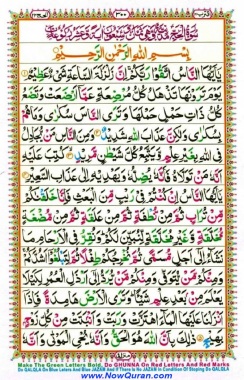 ۳۰۰
بِسْمِ اللهِ الرَّحْمٰنِ الرَّحِيْمِ
يٰٓاَيُّهَا النَّاسُ اتَّقُوْا رَبَّكُمْ ۚ اِنَّ زَلْزَلَةَ السَّاعَةِ شَيْءٌ عَظِيْمٌ
يَوْمَ تَرَوْنَهَا تَذْهَلُ كُلُّ مُرْضِعَةٍ عَمَّآ اَرْضَعَتْ وَتَضَعُ
كُلُّ ذَاتِ حَمْلٍ حَمْلَهَا وَتَرَى النَّاسَ سُكٰرٰى وَمَا هُمْ
بِسُكٰرٰى وَلٰكِنَّ عَذَابَ اللهِ شَدِيْدٌ وَمِنَ النَّاسِ مَنْ يُّجَادِلُ
فِي اللهِ بِغَيْرِ عِلْمٍ وَّيَتَّبِعُ كُلَّ شَيْطٰنٍ مَّرِيْدٍ كُتِبَ عَلَيْهِ
اَنَّهٗ مَنْ تَوَلَّاهُ فَاَنَّهٗ يُضِلُّهٗ وَيَهْدِيْهِ اِلٰى عَذَابِ السَّعِيْرِ
يٰٓاَيُّهَا النَّاسُ اِنْ كُنْتُمْ فِيْ رَيْبٍ مِّنَ الْبَعْثِ فَاِنَّا خَلَقْنٰكُمْ
مِّنْ تُرَابٍ ثُمَّ مِنْ نُّطْفَةٍ ثُمَّ مِنْ عَلَقَةٍ ثُمَّ مِنْ مُّضْغَةٍ
مُّخَلَّقَةٍ وَّغَيْرِ مُخَلَّقَةٍ لِّنُبَيِّنَ لَكُمْ ۚ وَنُقِرُّ فِي الْاَرْحَامِ مَا
نَشَآءُ اِلٰٓى اَجَلٍ مُّسَمًّى ثُمَّ نُخْرِجُكُمْ طِفْلًا ثُمَّ لِتَبْلُغُوْٓا اَشُدَّكُمْ
وَمِنْكُمْ مَّنْ يُّتَوَفّٰى وَمِنْكُمْ مَّنْ يُّرَدُّ اِلٰٓى اَرْذَلِ الْعُمُرِ لِكَيْلَا
يَعْلَمَ مِنْۢ بَعْدِ عِلْمٍ شَيْـًٔا ۚ وَتَرَى الْاَرْضَ هَامِدَةً فَاِذَآ
اَنْزَلْنَا عَلَيْهَا الْمَآءَ اهْتَزَّتْ وَرَبَتْ وَاَنْۢبَتَتْ مِنْ كُلِّ زَوْجٍۢ
بَهِيْجٍ ذٰلِكَ بِاَنَّ اللهَ هُوَ الْحَقُّ وَاَنَّهٗ يُحْيِ الْمَوْتٰى وَاَنَّهٗ
Make The Green Letters Bold, Do GHUNNA On Red Letters And Red Marks
Do QALQLA On Blue Leters And Blue JAZAM And If There Is No JAZAM In Condition Of Stoping Do QALQLA
www.NowQuran.com